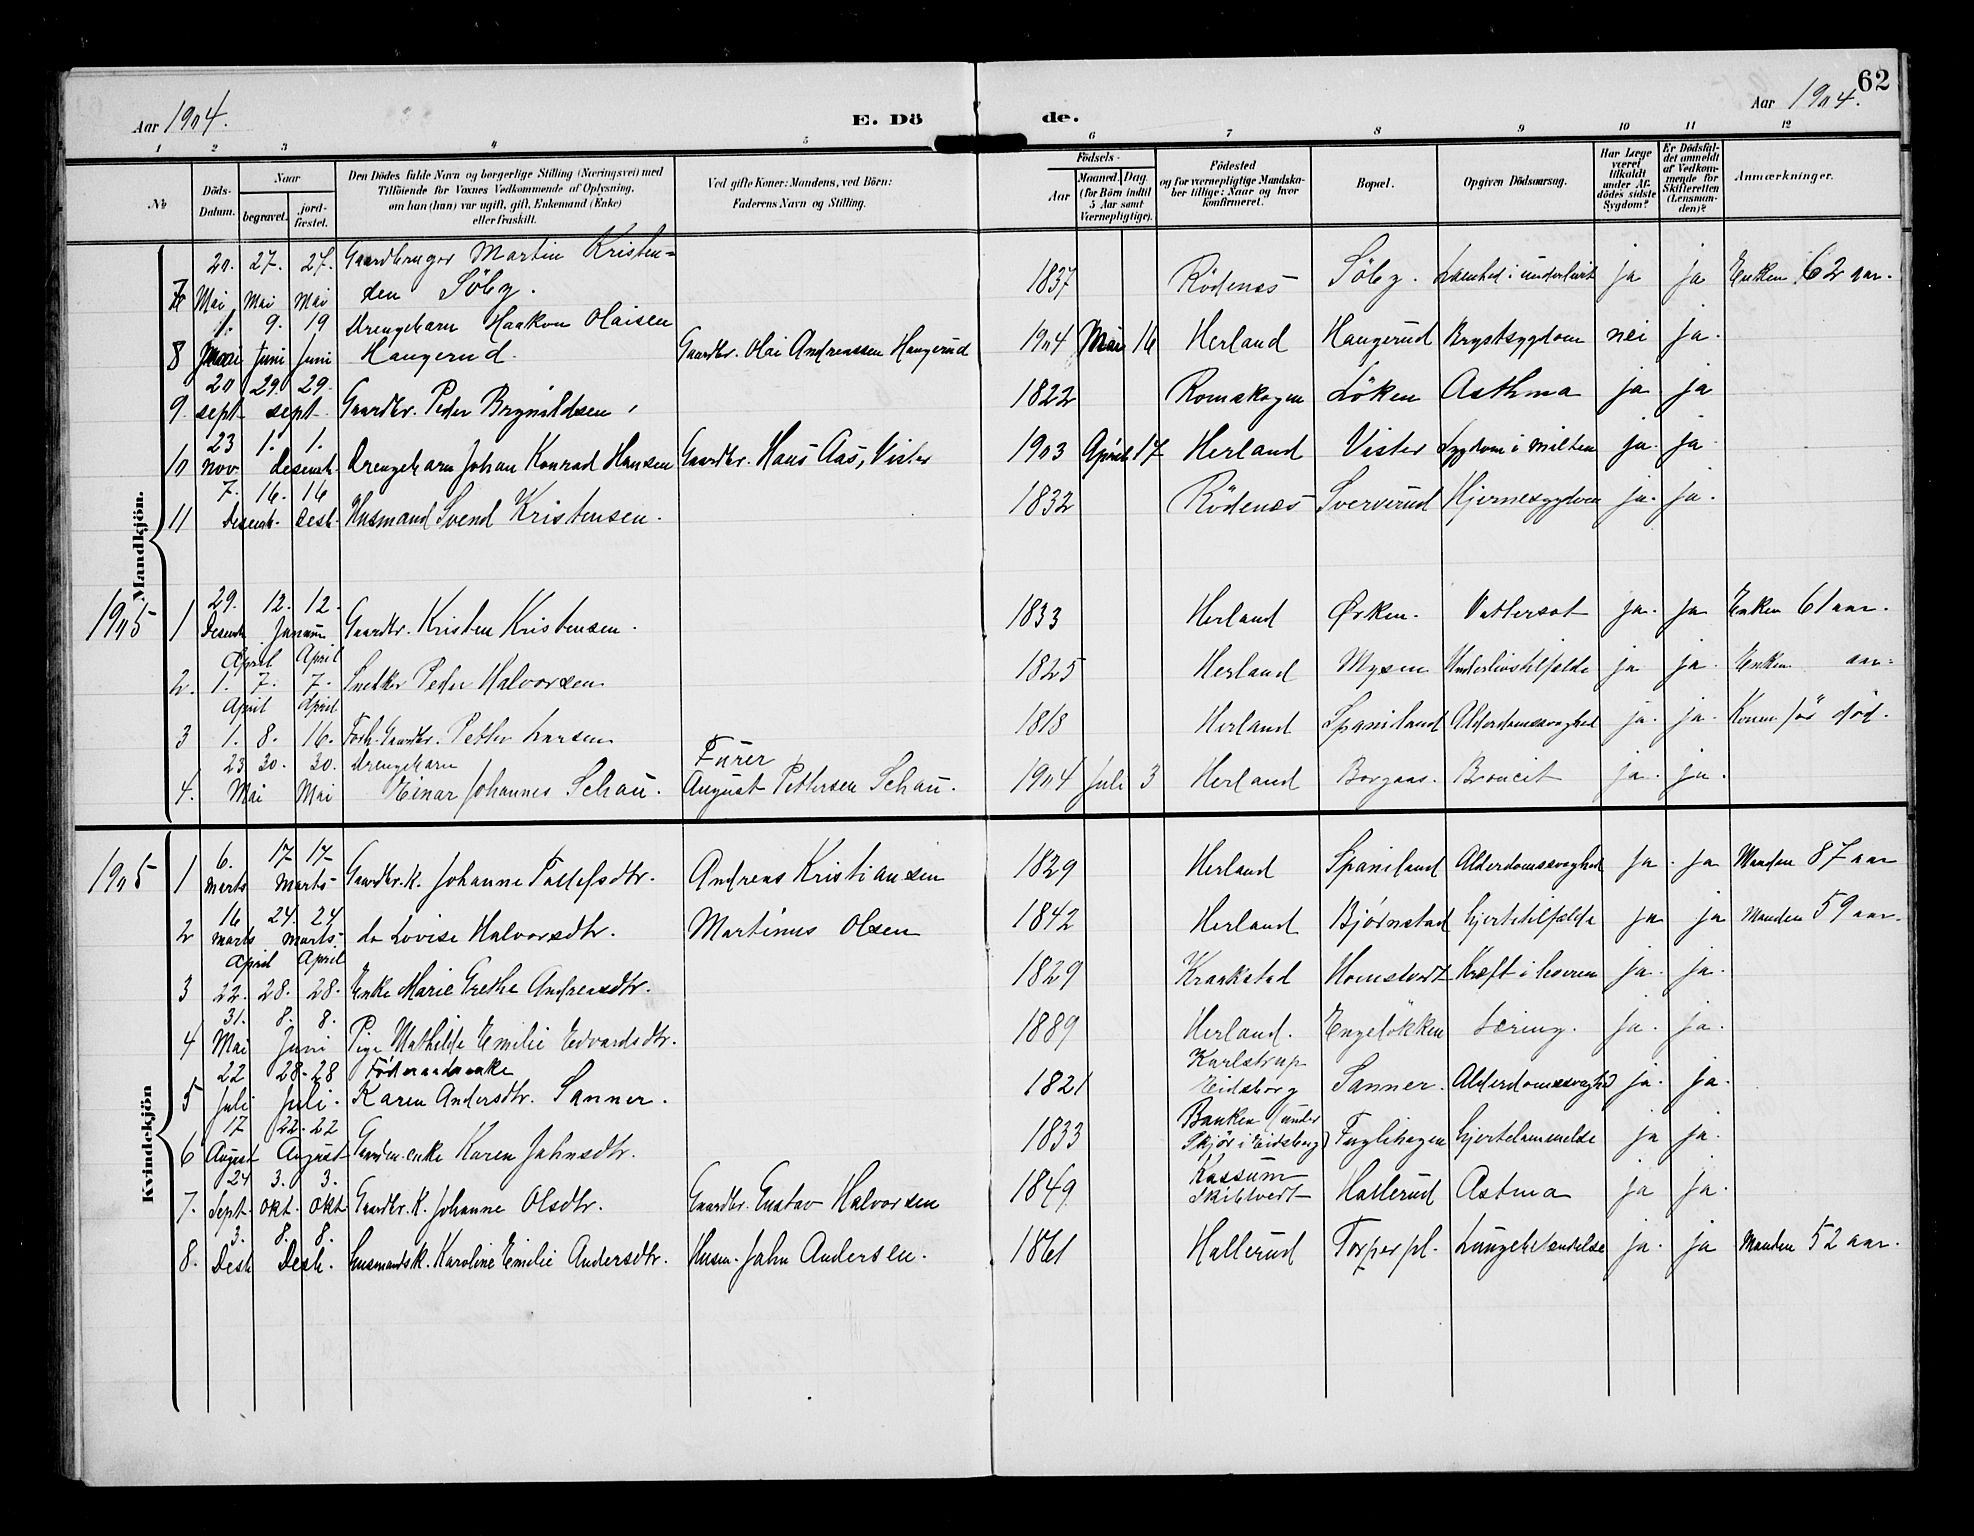 62
Aar 1904. E. Dö de. Aar 1904.
1 2 3 4 5 6 7 8 9 10 11 12
No
Döds-Datum.
Naar
begravet.
jord-fæstet.
Den Dödes fulde Navn og borgerlige Stilling (Næringsvei) med
Tilföiende for Voxnes Vedkommende af Oplysning,
om han (hun) var ugift, gift, Enkemand (Enke)
eller fraskilt.
Ved gifte Koner: Mandens, ved Börn:
Faderens Navn og Stilling.
Födsels-
Aar
Maaned. Dag.
(for Börn indtil
5 Aar samt
Værnepligtige).
Födested
og for værnepligtige Mandska-
ber tillige: Naar og hvor
konfirmeret.
Bopæl.
Opgiven Dödsaarsag.
Har Læge
været
tilkaldt
under Af-
dödes sidste
Sygdom?
Er Dödsfal-
det anmeldt
af Vedkom-
mende for
Skifteretten
(Lensman-
den)?
Anmærkninger.
Mandkjön.
20. 27. 27. Gaardbruger Martin Kristen=
7 Mai Mai Mai sen Söby. 1837 Rödenæs Söby. Lamhed i underlivet ja ja Enken 62 aar.
1. 9. 19 Drengebarn Haakon Olaisen
8 Juni Juni Haugerud. Gaardbr. Olai Andreassen Haugerud 1904 Mai 16 Herland Haugerud Brystsygdom nei ja.
20 29. 29.
9. sept. sept. Gaardbr. Peder Brynildsen 1822 Romskogen Löken Asthma ja ja
23 1. 1.
10 nov. desemb. Drengebarn Johan Konrad Hansen Gaardbr. Hans Aas, Vister 1903 April 17 Herland Vister Sygdom i milten ja. ja.
7. 16. 16
11 Desemb. desb. Husmand Svend Kristensen. 1832 Rödenæs Sververud Hjernesygdom ja. ja.
29. 12. 12.
1905 1 Desemb Januar Gaardbr. Kristen Kristensen. 1833 Herland Ørken. Vattersot ja. ja Enken 61 aar.
April April
2. 1. 7. 7. Snekker Peder Halvorsen. 1825 Herland Mysen Underlivstilfælde ja ja. Enken aar.
April April
3 1. 8. 16. Forh. Gaardbr. Petter Larsen 1818 Herland Spaniland Alderdomssvaghed ja. ja. Konen før död.
23 30. 30. Drengebarn Furer
4. Mai Mai Einar Johannes Schau. August Pettersen Schau. 1904 Juli 3 Herland Borgaas. Broncit ja. ja.
Kvindekjön
6. 17 17
1905 1 marts marts Gaardbr. k. Johanne Tollefsdtr. Andreas Kristiansen 1829 Herland Spaniland Alderdomssvaghed ja. ja Manden 87 aar
16 24. 24
2 marts marts do Lovise Halvorsdtr. Martinus Olsen 1842 Herland Bjørnstad hjertetilfælde ja ja Manden 59 aar.
April April
3 22. 28. 28. Enke Marie Grethe Andreasdtr. 1829 Kraakstad Homstvedt Kræft i leveren ja. ja.
31. 8. 8.
4 Mai Juni Pige Mathilde Emilie Edvardsdtr. 1889 Herland. Engeløkken Tæring. ja. ja.
22 28. 28 Föderaadsenke Karlstrup
5 Juli Juli. Karen Andersdtr. Sanner. 1821 Eidsborg Sanner. Alderdomssvaghed ja. ja.
17 22. 22 Banken (under
6 August August Gaardm. enke Karen Jahnsdtr. 1833 Skjør i Eidsberg) Fuglehagen hjertelammelse ja ja.
24 3. 3. Kassum
7. Sept. okt. okt Gaardbr. K. Johanne Olsdtr. Gaardbr. Gustav Halvorsen 1849. Skibtvedt Hallerud Astma ja ja.
3. 8. 8.
8. Desb Desb. Husmandsk. Karoline Emilie Andersdtr. Husm. Jahn Andersen. 1861 Hallerud Torper pl. Lungebetændelse ja. ja Manden 52 aar.